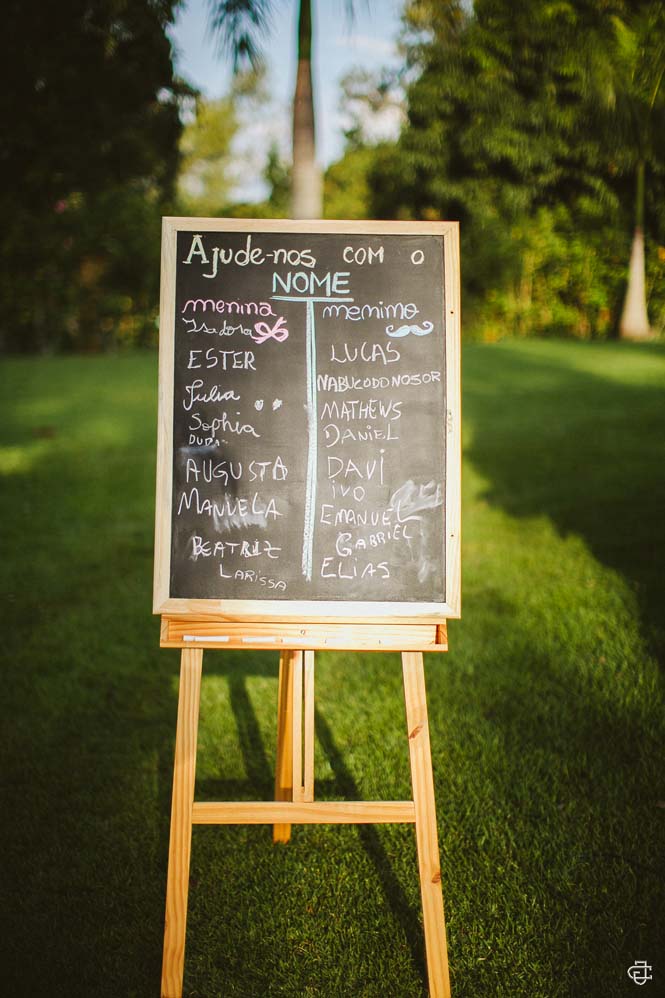 Ajude-nos com o
NOME
menina
Isadora
ESTER
Julia
Sophia
DUDA
AUGUSTA
MANUELA
BEATRIZ
LARISSA
menimo
LUCAS
NABUCODONOSOR
MATHEWS
DANIEL
DAVI
IVO
EMANUEL
GABRIEL
ELIAS